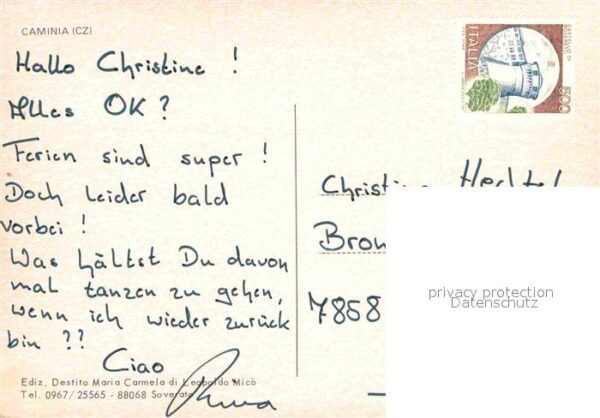 CAMINIA (CZ)
Hallo Christine !
Alles OK ?
Ferien sind super !
Doch leider bald
vorbei !
Was hältst Du davon
mal tanzen zu gehen,
wenn ich wieder zurück
bin ??
Ciao
Ediz. Destito Maria Carmela di Leopoldo Micò
Tel. 0967/25565 - 88068 Soverato
ITALIA
500
Christine
7858
privacy protection
Datenschutz